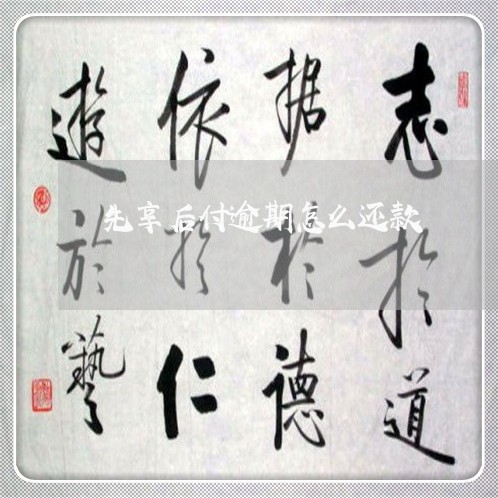 志於道
据於德
依於仁
遊於藝
先享后付逾期怎么还款